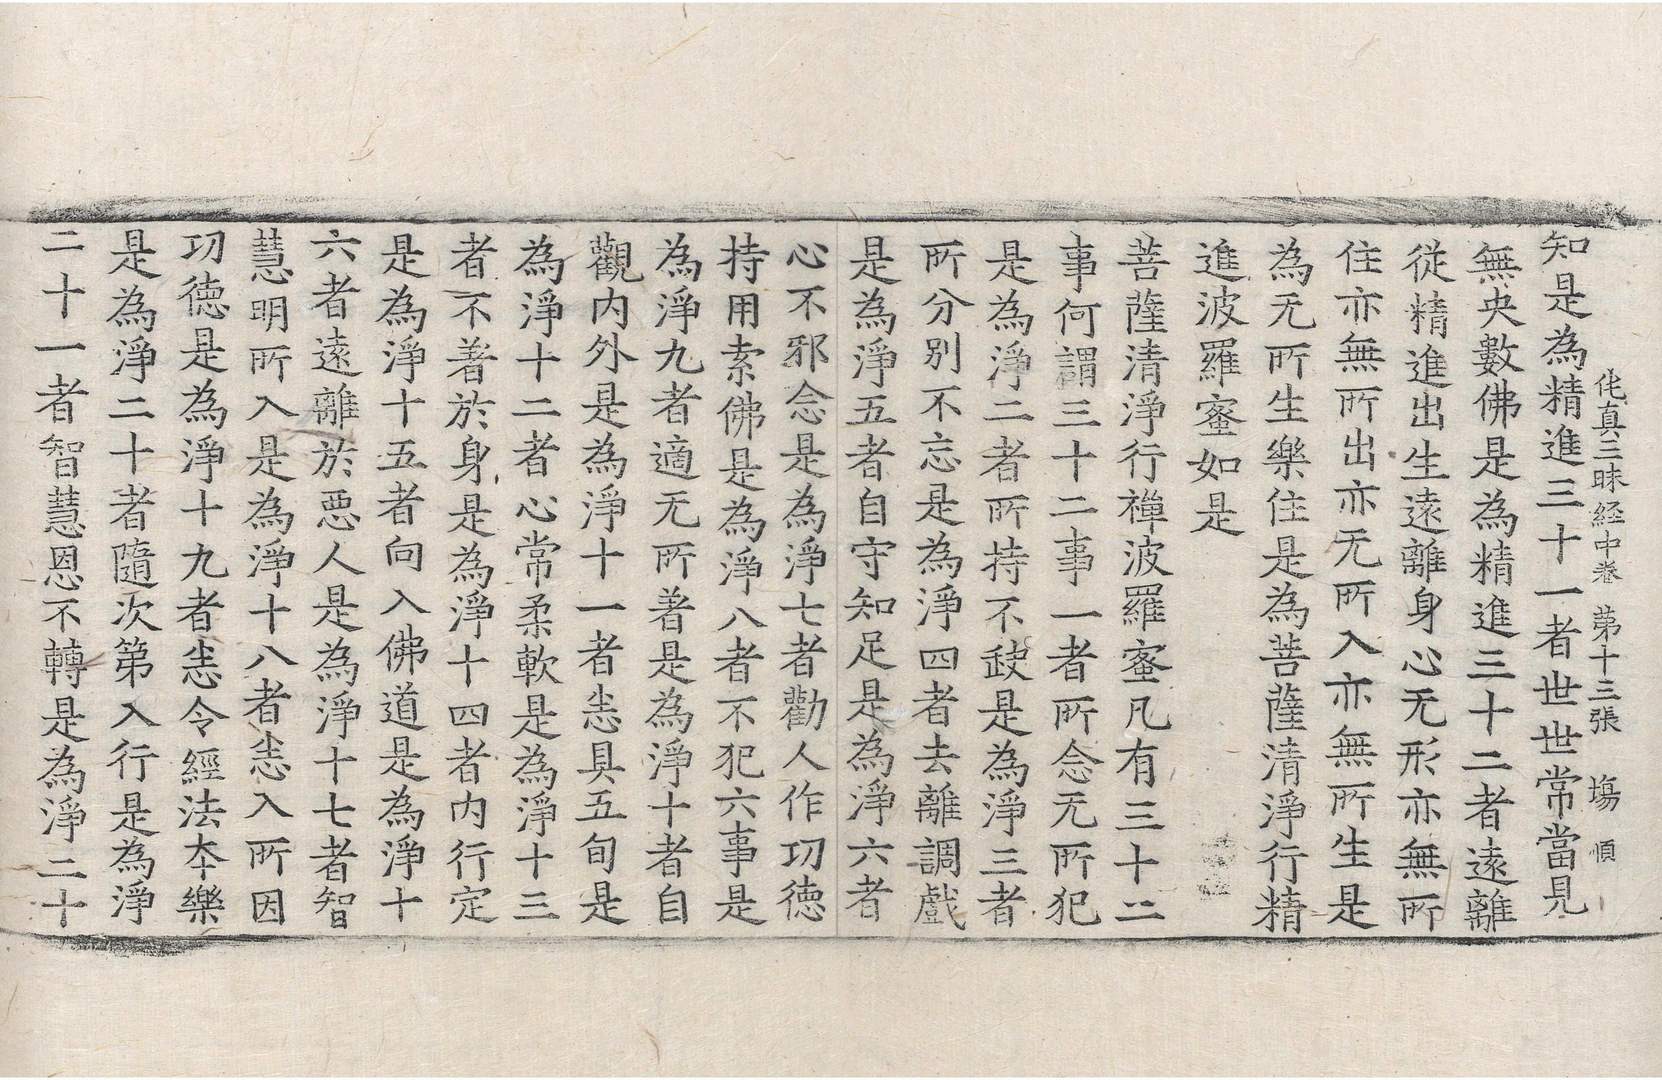 佗真三昧経中卷 第十三張 塲 順
知是為精進三十一者世世常當見
無央數佛是為精進三十二者遠離
從精進出生遠離身心无形亦無所
住亦無所出亦无所入亦無所生是
為无所生樂住是為菩薩清淨行精
進波羅蜜如是
菩薩清淨行禪波羅蜜凡有三十二
事何謂三十二事一者所念无所犯
是為淨二者所持不䟽是為淨三者
所分別不忘是為淨四者去離調戲
是為淨五者自守知足是為淨六者
心不邪念是為淨七者勸人作功德
持用索佛是為淨八者不犯六事是
為淨九者適无所著是為淨十者自
觀內外是為淨十一者恚具五旬是
為淨十二者心常柔軟是為淨十三
者不著於身是為淨十四者內行定
是為淨十五者向入佛道是為淨十
六者遠離於惡人是為淨十七者智
慧明所入是為淨十八者悉入所因
功德是為淨十九者悉令經法夲樂
是為淨二十者隨次第入行是為淨
二十一者智慧恩不轉是為淨二十